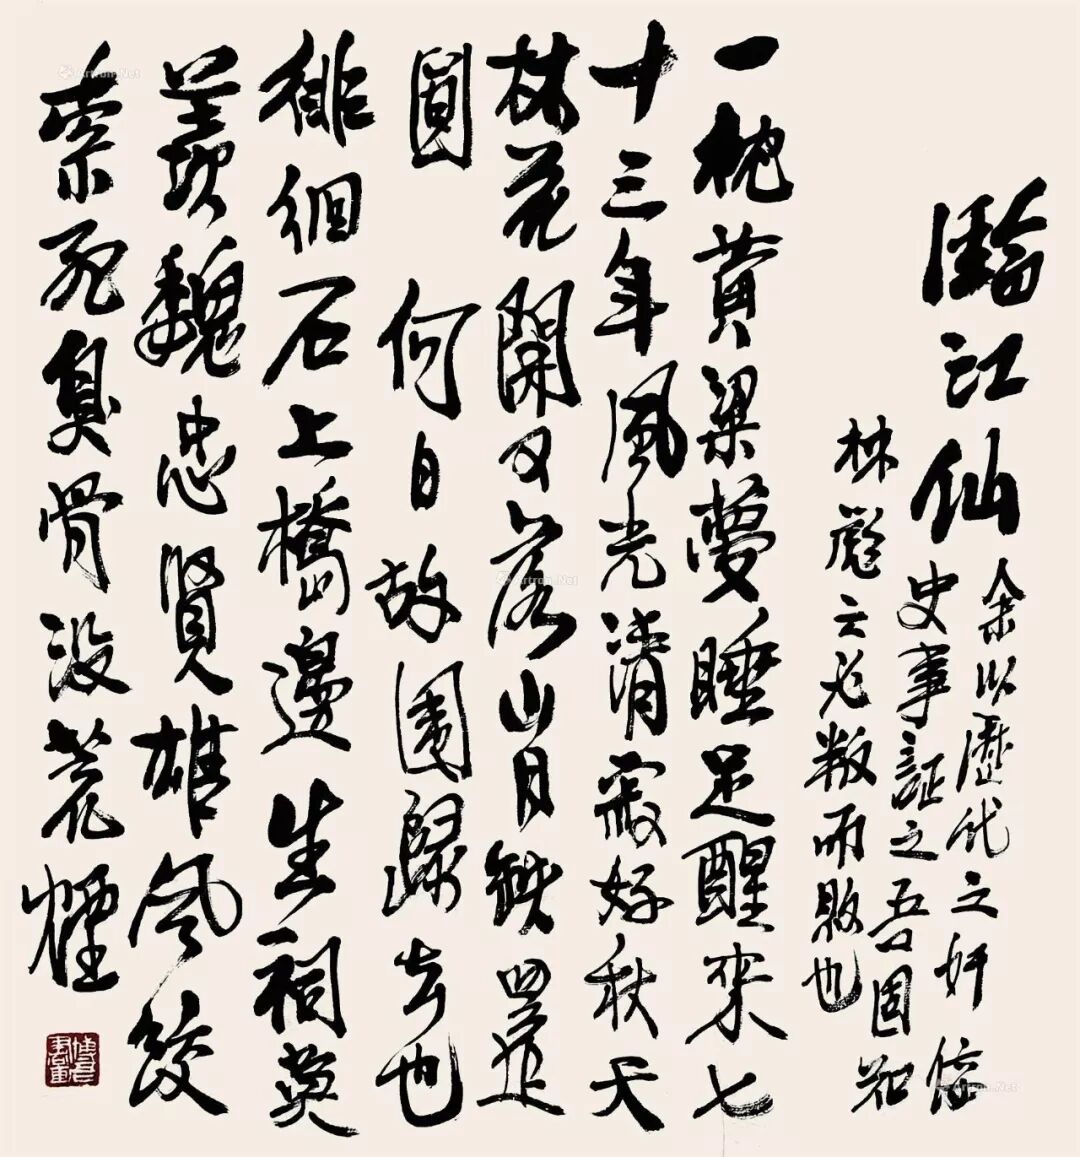 臨江仙 余以歷代之奸佞
史事証之吾固知
林彪之必叛而敗也
一枕黃粱夢睡足醒來七
十三年風光清寂好秋天
林花開又落山月缺還
圓 何日故園歸去也
徘徊石上橋邊生祠莫
羨魏忠賢雄風絞
索死臭骨沒荒煙
Artron.Net
Artron.Net
Artron.Net